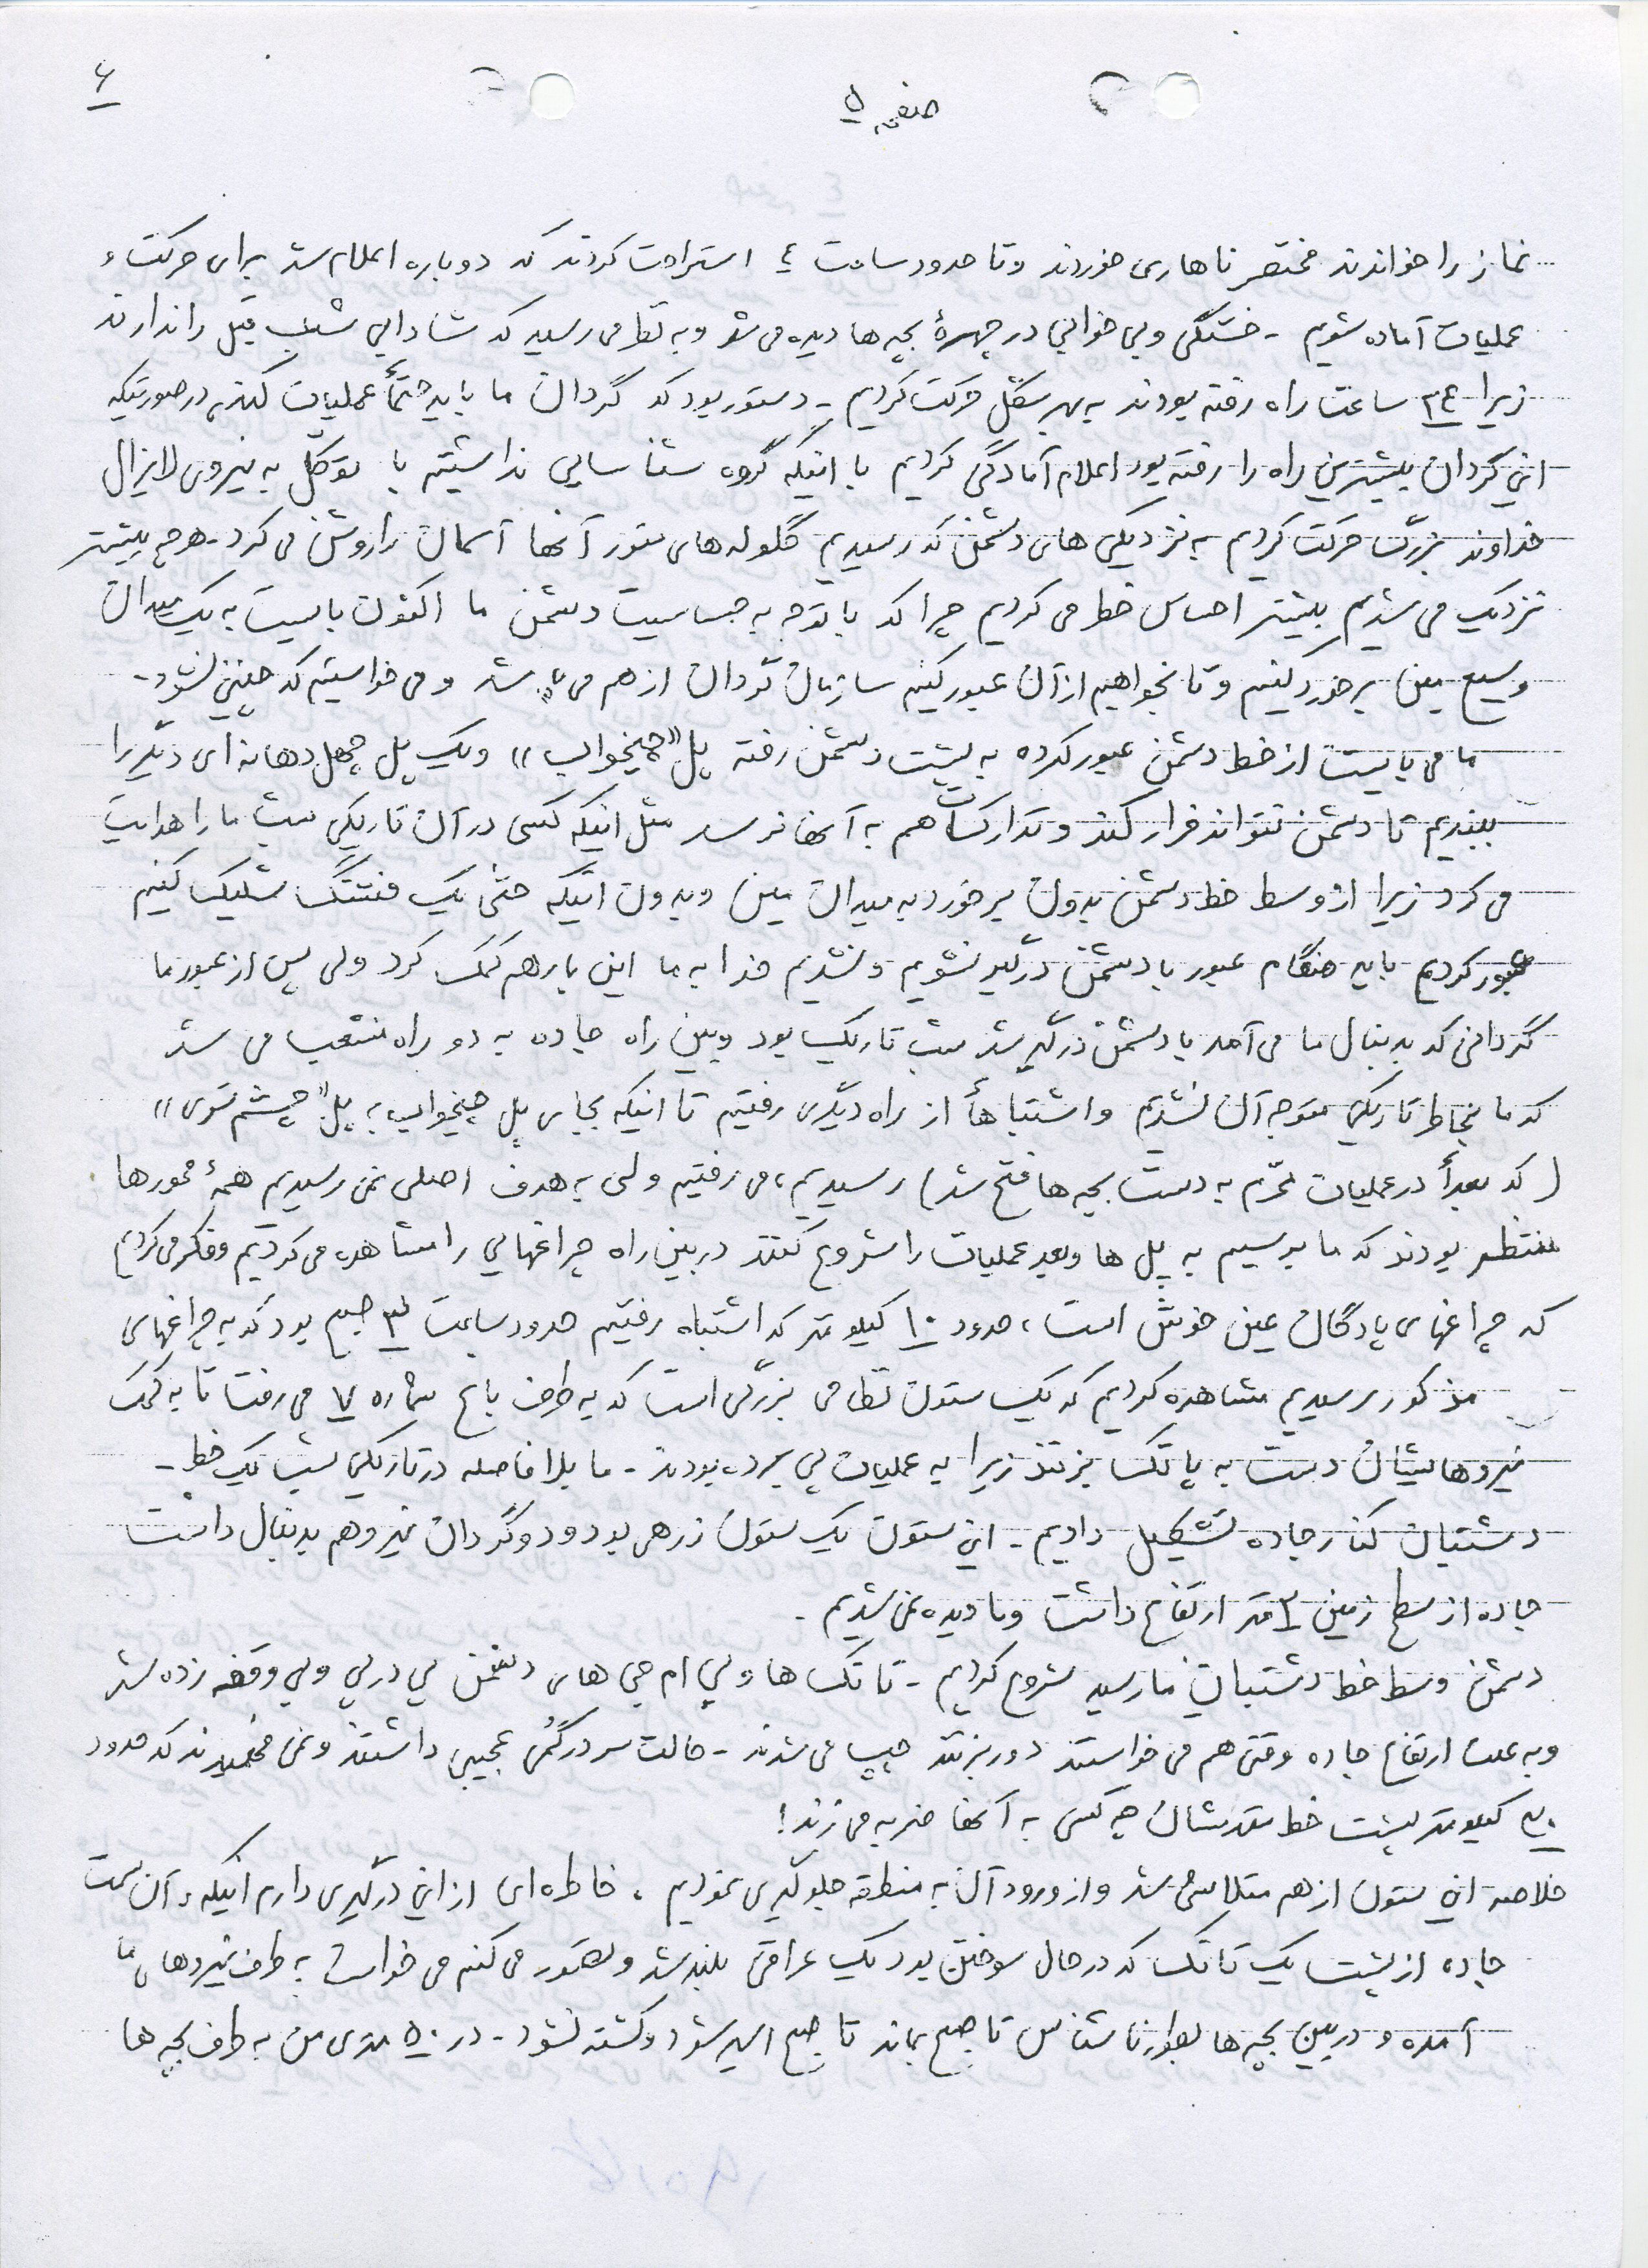 ۶
صفحه ۵
نماز را خواندند مختصر ناهاری خوردند و تا حدود ساعت ٤ استراحت کردند که دوباره اعلام شد برای حرکت و
عملیات آماده شویم - خستگی و بی خوابی در چهرهٔ بچه ها دیده می شد و به نظر می رسید که شادابی شب قبل را ندارند
زیرا ٣٤ ساعت راه رفته بودند به هر شکل حرکت کردیم - دستور بود که گردان ما باید حتماً عملیات کند، در صورتیکه
این گردان بیشترین راه را رفته بود اعلام آمادگی کردیم با اینکه گروه شناسایی نداشتیم با توکّل به نیروی لایزال
خداوند بزرگ حرکت کردیم به نزدیکی های دشمن که رسیدیم گلوله های منور آنها آسمان را روشن می کرد - هرچه بیشتر
نزدیک می شدیم بیشتر احساس خطر می کردیم چرا که با توجه به حساسیت دشمن ما اکنون بایست به یک میدان
وسیع مین برخورد کنیم و تا بخواهیم از آن عبور کنیم سازمان گردان از هم می پاشد و می خواستیم که چنین نشود -
ما می بایست از خط دشمن عبور کرده به پشت دشمن رفته پل «چیخواب» و یک پل چهل دهانه ای دیگر را
ببندیم تا دشمن نتواند فرار کند و تدارکات هم به آنها نرسد مثل اینکه کسی در آن تاریکی شب ما را هدایت
می کرد زیرا از وسط خط دشمن بدون برخورد به میدان مین و بدون اینکه حتّی یک فشنگ شلیک کنیم
عبور کردیم باید هنگام عبور با دشمن درگیر نشویم و نشدیم خدا به ما این بار هم کمک کرد ولی پس از عبور ما
گردانی که بدنبال ما می آمد با دشمن درگیر شد شب تاریک بود و بین راه جاده به دو راه منشعب می شد
که ما بخاطر تاریکی متوجه آن نشدیم و اشتباهاً از راه دیگری رفتیم تا اینکه بجای پل چیخواب به پل «چشم شوری»
(که بعداً در عملیات محرّم به دست بچه ها فتح شد) رسیدیم، می رفتیم ولی به هدف اصلی نمی رسیدیم همهٔ محورها
منتظر بودند که ما برسیم به پل ها و بعد عملیات را شروع کنند در بین راه چراغهایی را مشاهده می کردیم و فکر می کردیم
که چراغهای پادگان عین خوش است، حدود ۱۰ کیلومتر که اشتباه رفتیم حدود ساعت ۳ صبح بود که به چراغهای
مذکور رسیدیم مشاهده کردیم که یک ستون نظامی بزرگی است که به طرف باغ شماره ۷ می رفت تا به کمک
نیروهایشان دست به پاتک بزنند زیرا به عملیات پی برده بودند - ما بلافاصله در تاریکی شب یک خط -
دشتبان کنار جاده تشکیل دادیم - این ستون یک ستون زرهی بود و دو گردان نیرو هم بدنبال داشت
جاده از سطح زمین ۲ متر ارتفاع داشت و ما دیده نمی شدیم -
دشمن وسط خط دشتبان ما رسید شروع کردیم - تانک ها و پی ام پی های دشمن پی در پی و بی وقفه زده شد
و به علت ارتفاع جاده وقتی هم می خواستند دور بزنند چپ می شدند - حالت سردرگمُی عجیبی داشتند و نمی فهمیدند که حدود
۲۰ کیلومتر پشت خط مقدمشان چه کسی به آنها ضربه می زند!
خلاصه این ستون از هم متلاشی شد و از ورود آن به منطقه جلوگیری نمودیم، خاطره ای از این درگیری دارم اینکه، آن سمت
جاده از پشت یک تانک که در حال سوختن بود یک عراقی بلند شد و تصور می کنم می خواست به طرف نیروهای ما
آمده و در بین بچه ها بطور ناشناس تا صبح بماند تا صبح اسیر شود و کشته نشود - در ۵۰ متری من به طرف بچه ها